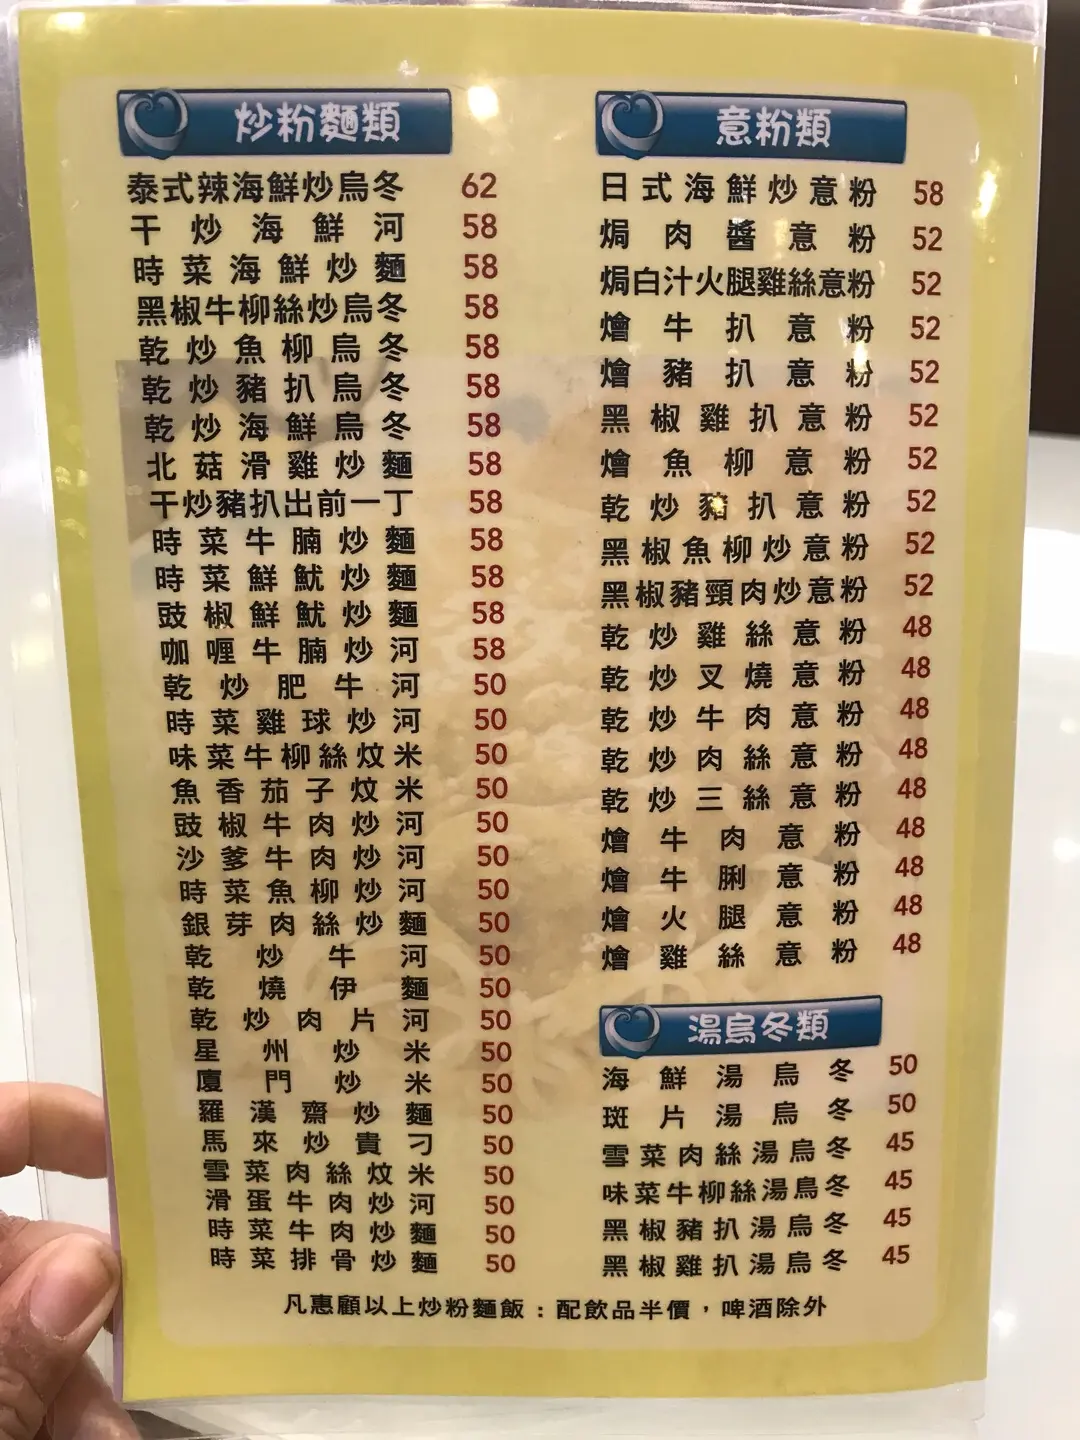 炒粉麵類
泰式辣海鮮炒烏冬 62
干炒海鮮河 58
時菜海鮮炒麵 58
黑椒牛柳絲炒烏冬 58
乾炒魚柳烏冬 58
乾炒豬扒烏冬 58
乾炒海鮮烏冬 58
北菇滑雞炒麵 58
干炒豬扒出前一丁 58
時菜牛腩炒麵 58
時菜鮮魷炒麵 58
豉椒鮮魷炒麵 58
咖喱牛腩炒河 58
乾炒肥牛河 50
時菜雞球炒河 50
味菜牛柳絲炆米 50
魚香茄子炆米 50
豉椒牛肉炒河 50
沙爹牛肉炒河 50
時菜魚柳炒河 50
銀芽肉絲炒麵 50
乾炒牛河 50
乾燒伊麵 50
乾炒肉片河 50
星州炒米 50
廈門炒米 50
羅漢齋炒麵 50
馬來炒貴刁 50
雪菜肉絲炆米 50
滑蛋牛肉炒河 50
時菜牛肉炒麵 50
時菜排骨炒麵 50
意粉類
日式海鮮炒意粉 58
焗肉醬意粉 52
焗白汁火腿雞絲意粉 52
燴牛扒意粉 52
燴豬扒意粉 52
黑椒雞扒意粉 52
燴魚柳意粉 52
乾炒豬扒意粉 52
黑椒魚柳炒意粉 52
黑椒豬頸肉炒意粉 52
乾炒雞絲意粉 48
乾炒叉燒意粉 48
乾炒牛肉意粉 48
乾炒肉絲意粉 48
乾炒三絲意粉 48
燴牛肉意粉 48
燴牛脷意粉 48
燴火腿意粉 48
燴雞絲意粉 48
湯烏冬類
海鮮湯烏冬 50
斑片湯烏冬 50
雪菜肉絲湯烏冬 45
味菜牛柳絲湯烏冬 45
黑椒豬扒湯烏冬 45
黑椒雞扒湯烏冬 45
凡惠顧以上炒粉麵飯：配飲品半價，啤酒除外